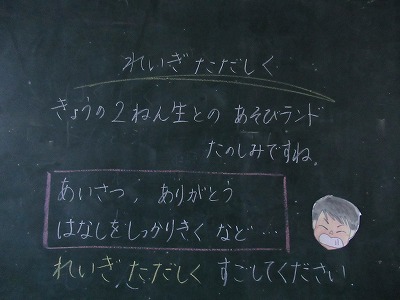 れいぎ ただしく
きょうの2ねん生との あそびランド
たのしみですね。
あいさつ, ありがとう
はなしをしっかりきく など…
れいぎ ただしく すごしてください